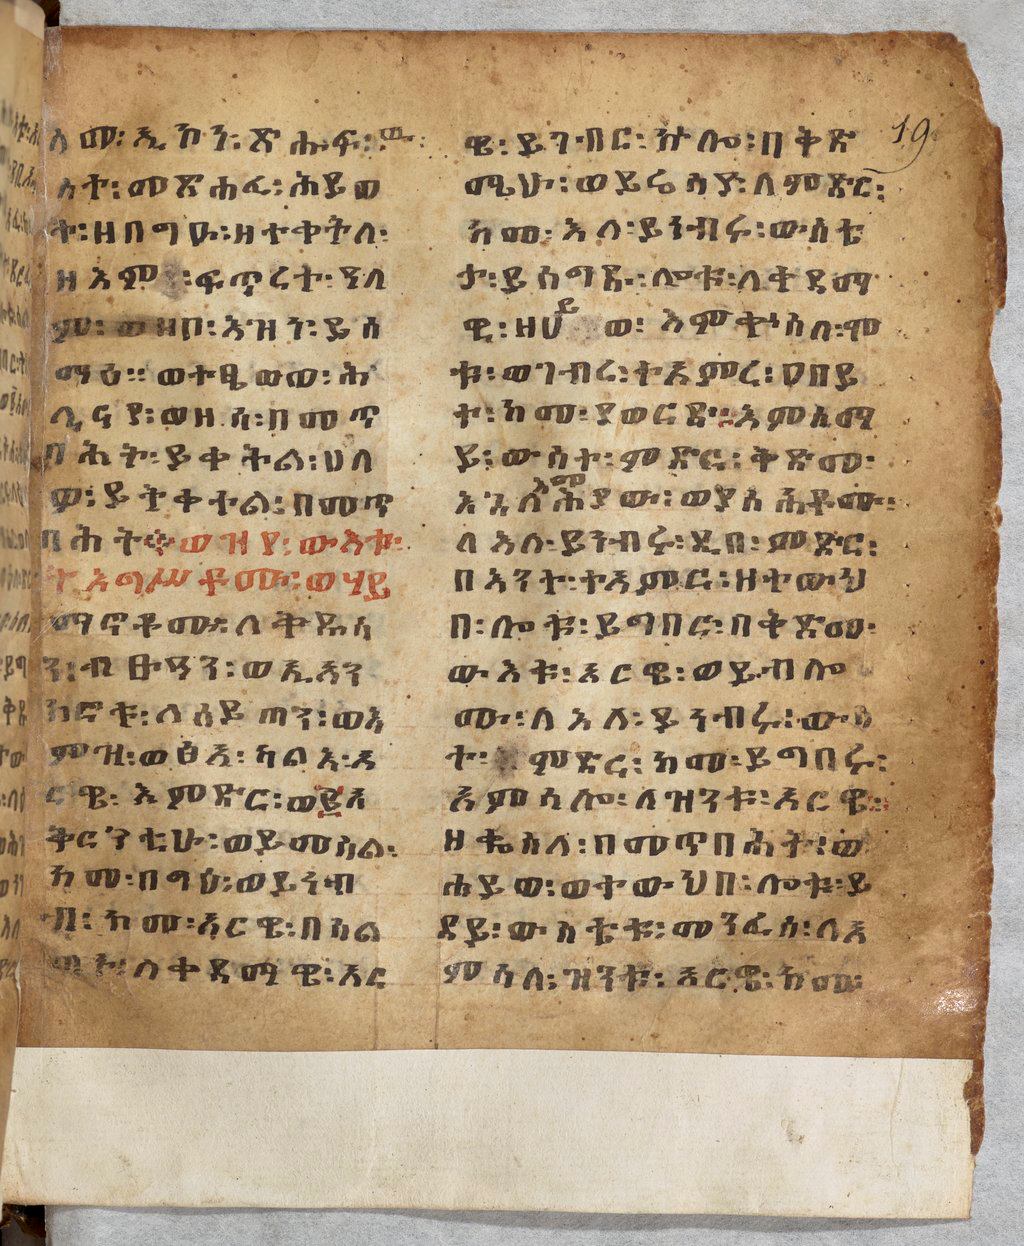 19
ለመ፡ ኢኮነ፡ ጽሑፍ፡
ሰተ፡ መጽሐፈ፡ ሕይወ
ት፡ ዘበግዑ፡ ዘተቀትለ፡
ዘእም ፡ ፍጥረተ፡ ዓለ
ም፡ ወዘቦ፡ እዝን፡ ይሰ
ማዕ። ወተፄወወ፡ ሕ
ሊና የ፡ ወዘሰ፡ በመጥ
በሕት፡ ይቀትል፡ ሀለ
ዎ፡ ይትቀተል፡ በመጥ
በሕት። ወዝየ፡ ውእቱ፡
ትእግሥቶሙ፡ ወሃይ
ማኖቶሙ፡ ለቅዱሳ
ን፡ ብፁዓን፡ ወኢዳን
ኮኖቱ፡ ለሰይጣን፡ ወእ
ምዝ፡ ወፅአ፡ ካልእ፡ አ
ርዌ፡ እምድር፡ ወ፪አ
ቅርንቲሁ፡ ወይመስል፡
ከመ፡ በግዕ፡ ወይነብ
ብ፡ ከመ፡ አርዌ፡ በኵል
ጣን፡ ለቀዳማዊ፡ አር
ዌ፡ ይገብር፡ ኵሎ፡ በቅድ
ሜሁ፡ ወይሬስያ፡ ለምድር፡
ከመ፡ እለ፡ ይነብሩ፡ ውስቴ
ታ፡ ይሰግዱ፡ ሎቱ፡ ለቀዳማ
ዊ፡ ዘሀይ ወ፡ እምቍስለ፡ ሞ
ቱ፡ ወገብረ፡ ተአምረ፡ ዐበይ
ተ፡ ከመ፡ ያወርድ፡ እምሰማ
ይ፡ ውስተ፡ ምድር፡ ቅድመ፡
እጓለ እመሕያው፡ ወያስሕቶሙ፡
ለእለ፡ ይነብሩ፡ ዲበ፡ ምድር፡
በእንተ፡ ተአምር፡ ዘተውህ
በ፡ ሎቱ፡ ይግበር፡ በቅድመ፡
ውእቱ፡ አርዌ፡ ወይብሎ
ሙ፡ ለእለ፡ ይነብሩ፡ ውስ
ተ፡ ምድር፡ ከመ፡ ይግበሩ፡
አምሳሎ፡ ለዝንቱ፡ አርዌ፡
ዘቈስለ፡ በመጥበሕት፡ ወ
ሐይወ፡ ወተውህበ፡ ሎቱ፡ ይ
ደይ፡ ውስቴቱ፡ መንፈሰ፡ ለአ
ምሳለ፡ ዝንቱ፡ አርዌ፡ ከመ፡